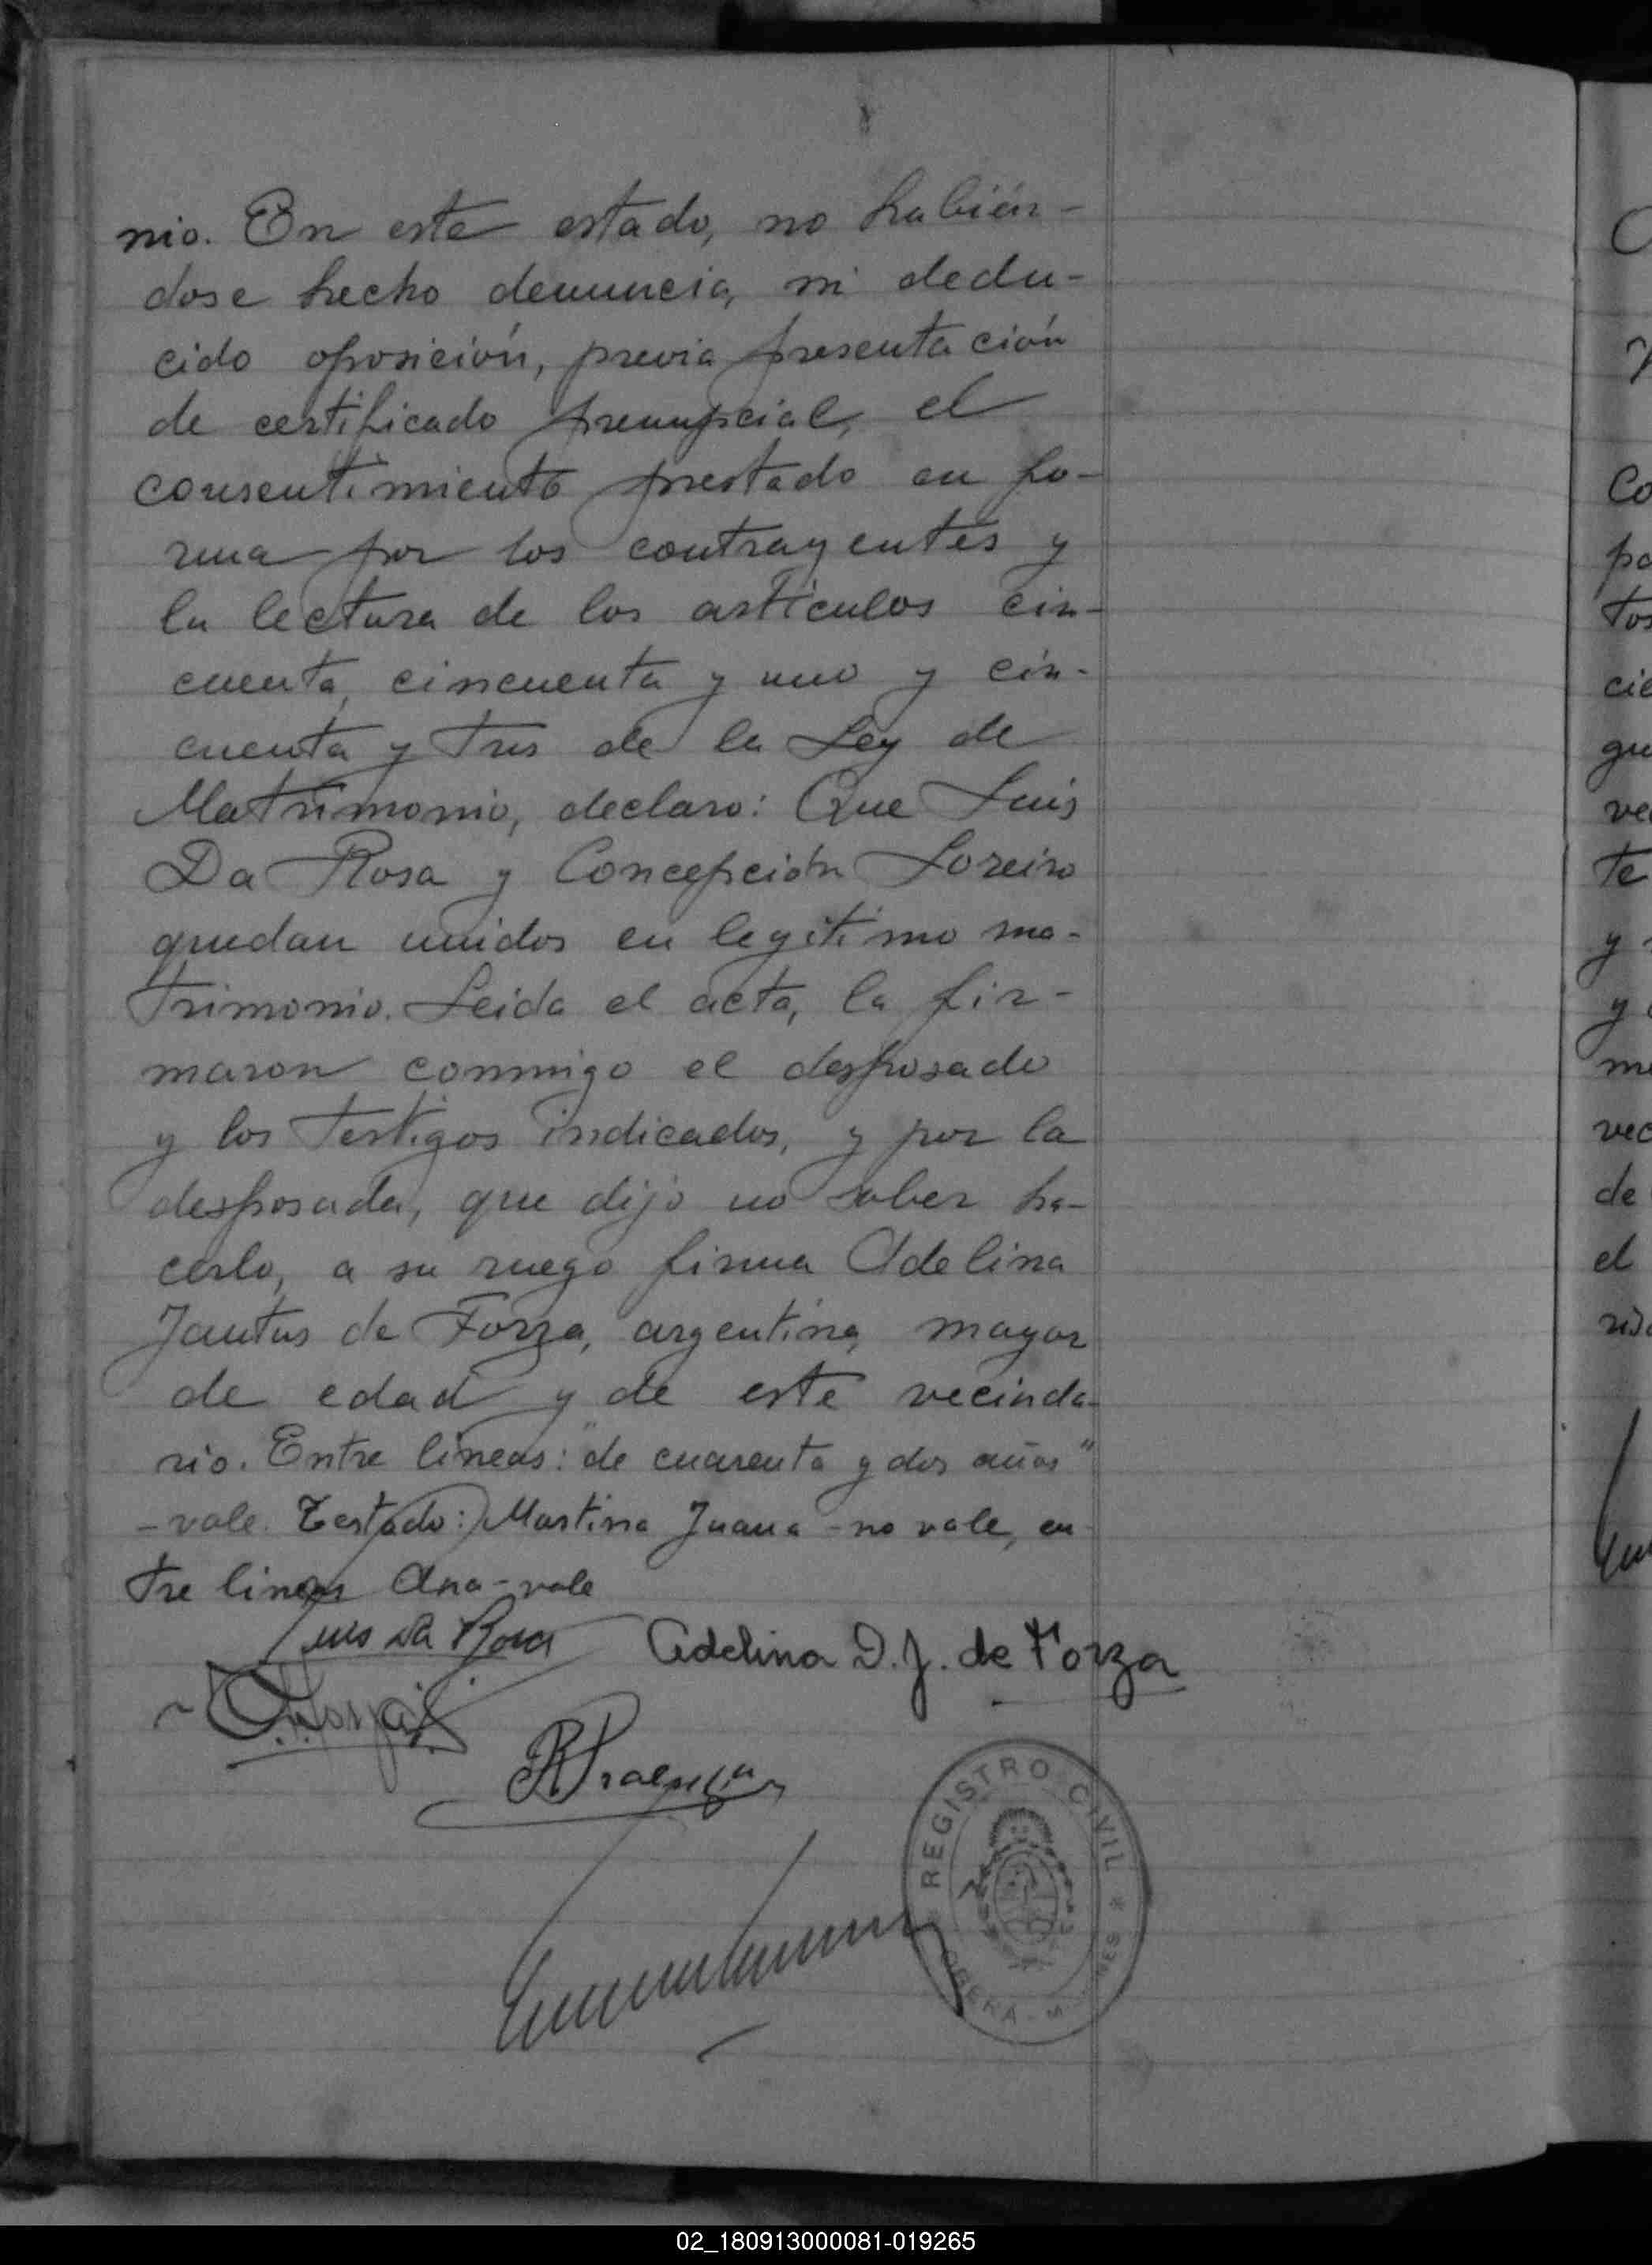 nio. En este estado, no habién-
dose hecho denuncia, ni dedu-
cido oposición, previa presentación
de certificado prenupcial, el
consentimiento prestado en fo-
rma por los contrayentes y
la lectura de los artículos cin-
cuenta, cincuenta y uno y cin-
cuenta y tres de la Ley de
Matrimonio, declaro: Que Luis
Da Rosa y Concepción Loreiro
quedan unidos en legítimo ma-
trimonio. Leida el acta, la fir-
maron conmigo el desposado
y los testigos indicados, y por la
desposada, que dijo no saber ha-
cerlo, a su ruego firma Adelina
Jantus de Forza, argentina, mayor
de edad y de este vecinda-
rio. Entre líneas: "de cuarenta y dos años"
-vale. Testado: Martina Juana - no vale, en
tre lineas Ana - vale
Luis Da Rosa Adelina D. J. de Forza
REGISTRO CIVIL *
OBERÁ
C
Co
pa
tos
cie
gu
ve
te
y
y
me
vec
de
el